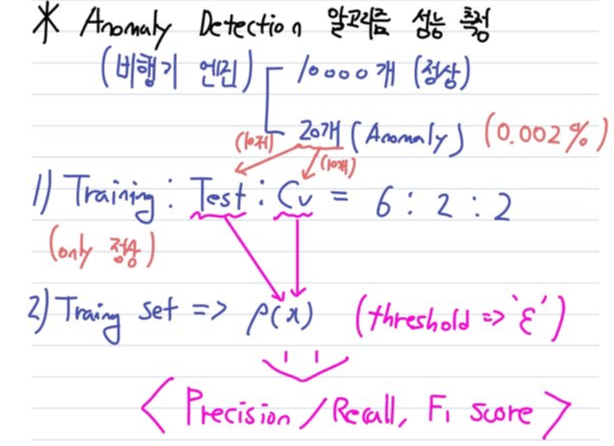 * Anomaly Detection 알고리즘 성능 측정
(비행기 엔진) 10000개 (정상)
20개 (Anomaly) (0.002%)
(10개) (10개)
1) Training : Test : Cv = 6 : 2 : 2
(only 정상)
2) Traing set => p(x) (threshold => 'ε')
< Precision / Recall, F1 score >